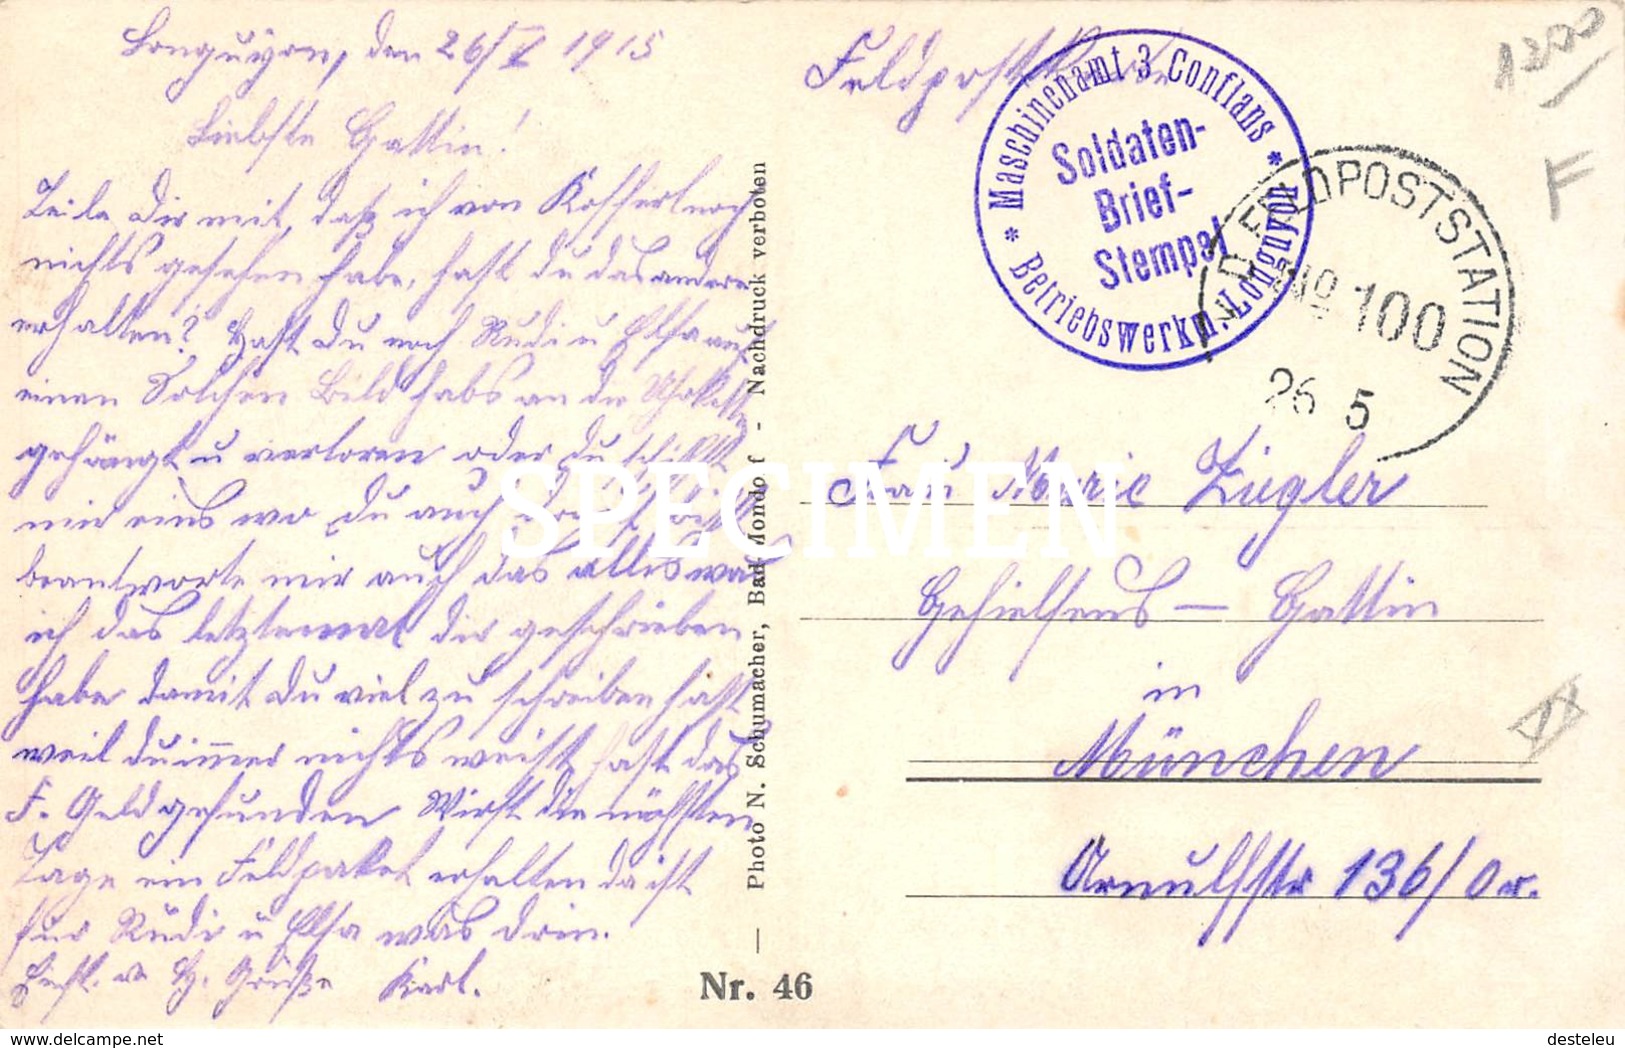 Longuyon, den 26/V 1915
Liebste Gattin!
Teile Dir mit, daß ich von Kofferl noch
nichts gesehen habe, hast du das andere
erhalten? Hast Du noch Rudi u Elsa auf
einen Solchen Bild habs an die
gehängt u verloren oder Du schickst
mir eins wo Du auch
beantworte mir auch das alles was
ich das letztemal dir geschrieben
habe damit Du viel zu schreiben hast
weil du immer nichts weißt hast das
F. Geld gefunden Wirst die nächsten
Tage ein Feldpaket erhalten da ist
für Rudi u Elsa was drin.
Grüße Karl.
— Photo N. Schumacher, Bad Mondorf - Nachdruck verboten
Nr. 46
Feldpost
* Maschinenamt 3 Conflans *
Betriebswerkm. Longuyon
Soldaten-
Brief-
Stempel
D. FELDPOSTSTATION
No 100
26 5
Frau Marie Ziegler
Gehielfens — Gattin
in
München
Arnulfstr 136/0 r.
1200
F
SPECIMEN
delcampe.net
desteleu